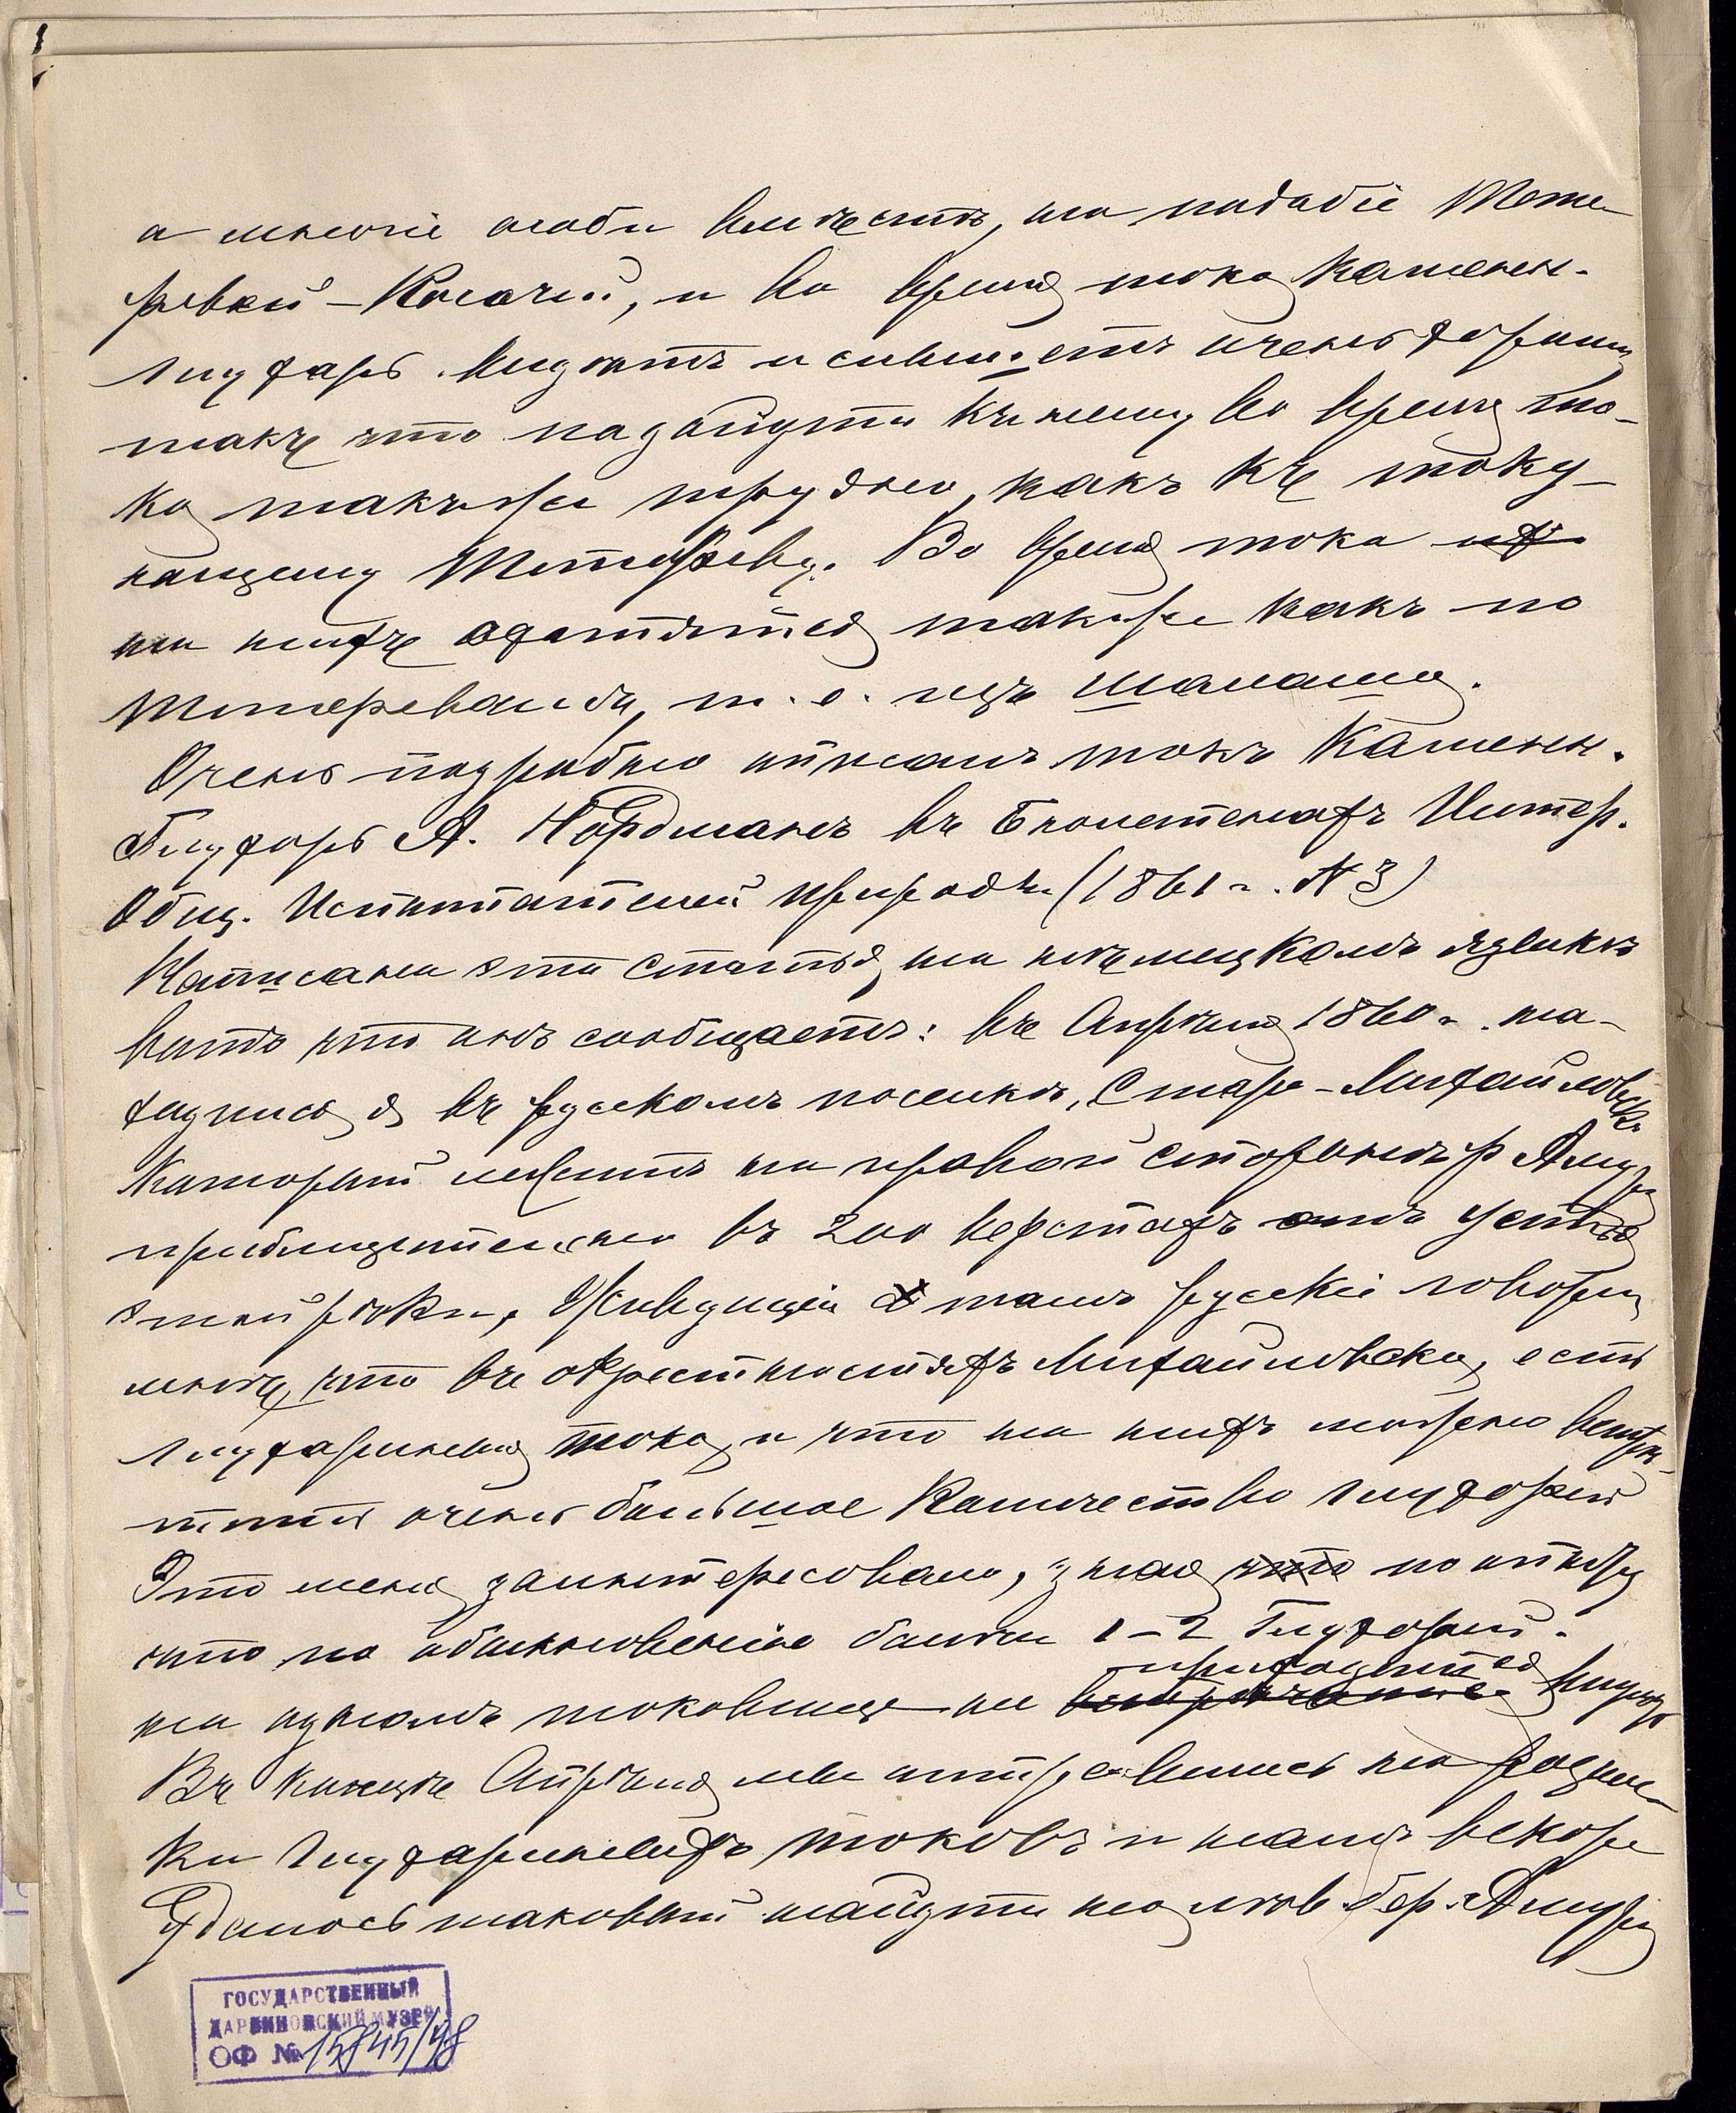 а многіе особи вмѣстѣ, на подобіе Тете-
ревей-Косачей, и во время тока Каменн.
глухарь видитъ и слышетъ очень хорошо
такъ что подойдти къ нему во время то-
ка такъ же трудно, какъ къ току-
ющему Тетереву. Во время тока
на нихъ охотятся такъ же какъ по
Тетеревамъ, т. е. изъ шалаша.
Очень подробно описалъ токъ Каменн.
Глухаря А. Нордманъ въ Бюлетеняхъ Импер.
Общ. Испытателей природы (1861 г. N 3)
Написана эта статья на нѣмецкомъ языкѣ
вотъ что онъ сообщаетъ: въ Апрѣлѣ 1860 г. на-
ходился я въ русскомъ поселкѣ, Старо-Михайловскѣ
который лежитъ на правой сторонѣ р Амура
приблизительно въ 200 верстахъ отъ устья
этой рѣки, Живущіи тамъ русскіе говорили
мнѣ, что въ окрестностяхъ Михайловска, есть
глухариные тока и что на нихъ можно встрѣ-
тить очень большое количество глухарей
Это меня заинтересовало, зная что по опыту
что по обыкновенію болѣе 1-2 Глухарей
на одномъ токовище не встрѣчается приходится видѣть
Въ концѣ Апрѣля мы отправились на розыс-
ки глухариныхъ токовъ и намъ вскоре
Удалось таковый найдти на лѣв. бер. Амура
ГОСУДАРСТВЕННЫЙ
ДАРВИНОВСКИЙ МУЗЕЙ
ОФ № 15845/98